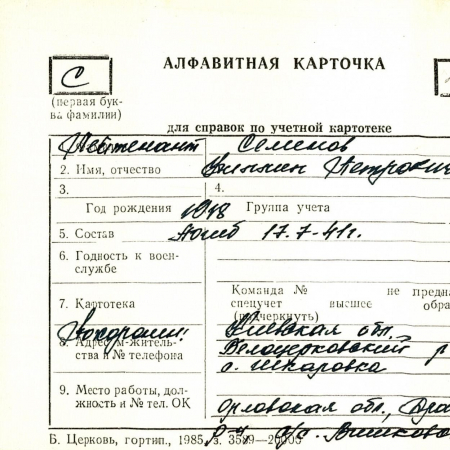 С
АЛФАВИТНАЯ КАРТОЧКА
(первая бук-
ва фамилии)
для справок по учетной картотеке
Лейтенант Семенов
2. Имя, отчество Петрович
3. 4.
Год рождения 1918 Группа учета
5. Состав Погиб 17.7-41г.
6. Годность к воен-
службе
Команда № не предна
7. Картотека спецучет высшее обра
(подчеркнуть)
Похоронен: Киевская обл.
8. Адрес м-житель-
ства и № телефона Белоцерковский р
с. Шкаровка
9. Место работы, дол-
жность и № тел. ОК
Орловская обл.,
Б. Церковь, гортип., 1985, з. 3589—20005
р-н, с/с.